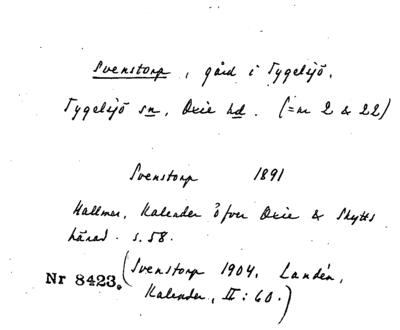 Svenstorp, gård i Tygelsjö,
Tygelsjö sn, Oxie hd. (=nr 2 & 22)
Svenstorp 1891
Hallmer, Kalender öfver Oxie & Skytts
härad. s. 58.
(Svenstorp 1904, Landén,
Nr 8423. Kalender, II: 60.)